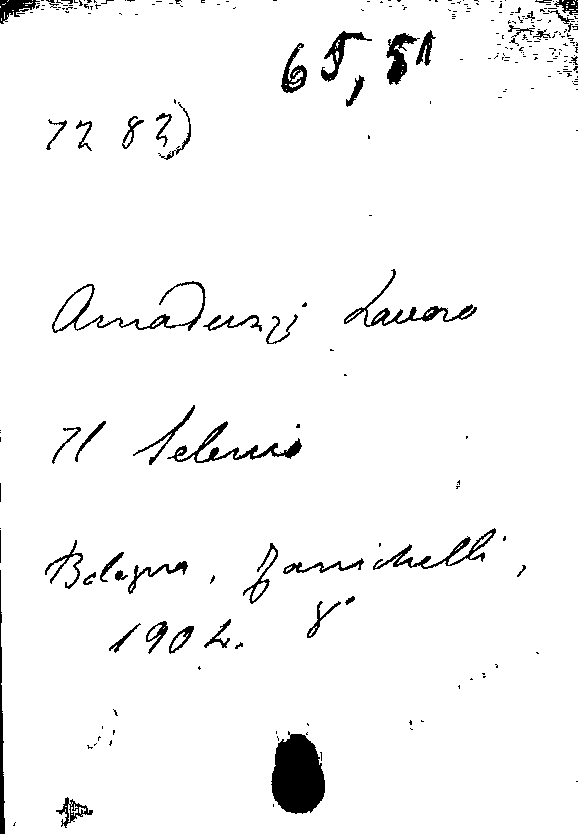 65,51
7283)
Amaduzzi Lavoro
Il Selenio
Bologna, Zanichelli,
1904. 8°